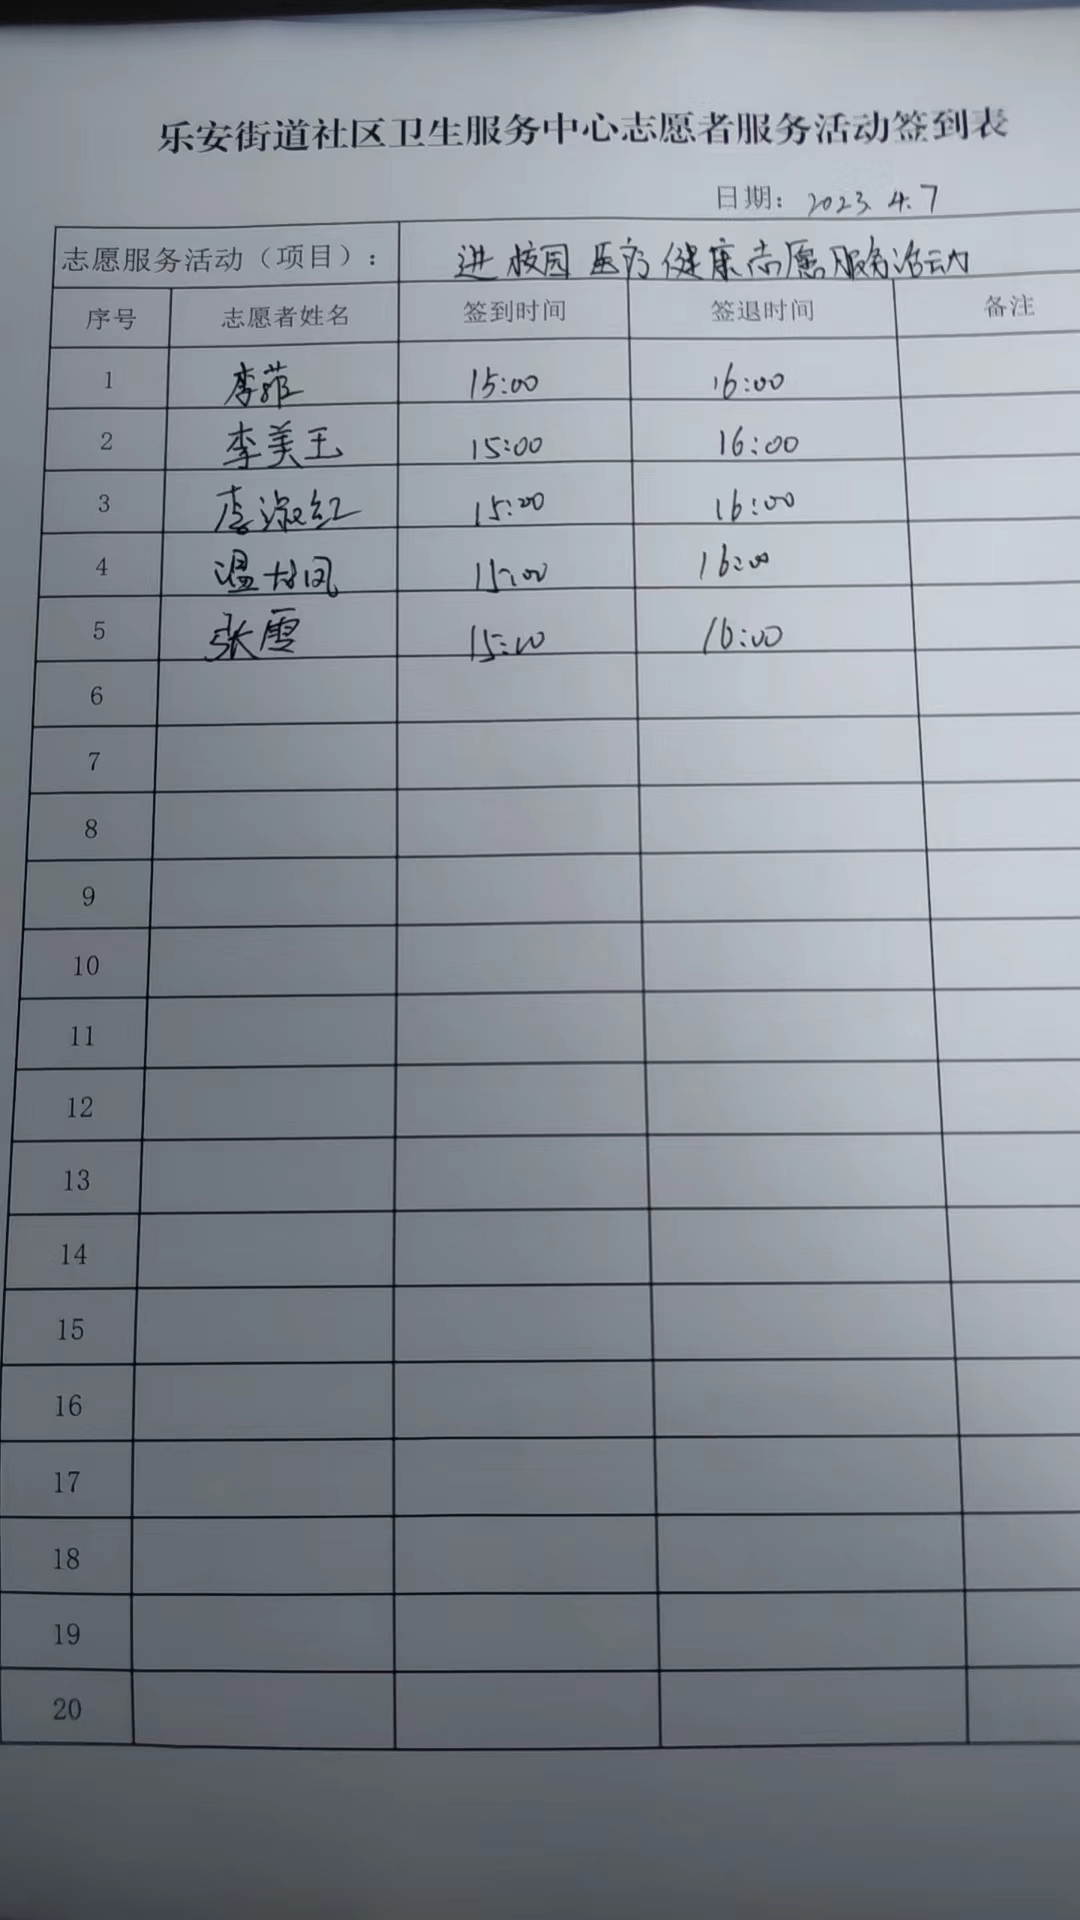 乐安街道社区卫生服务中心志愿者服务活动签到表
日期: 2023.4.7
志愿服务活动（项目）: 进校园医疗健康志愿服务活动
序号 志愿者姓名 签到时间 签退时间 备注
1 李菲 15:00 16:00
2 李美玉 15:00 16:00
3 李淑红 15:00 16:00
4 温 凤 15:00 16:00
5 张霞 15:00 16:00
6
7
8
9
10
11
12
13
14
15
16
17
18
19
20